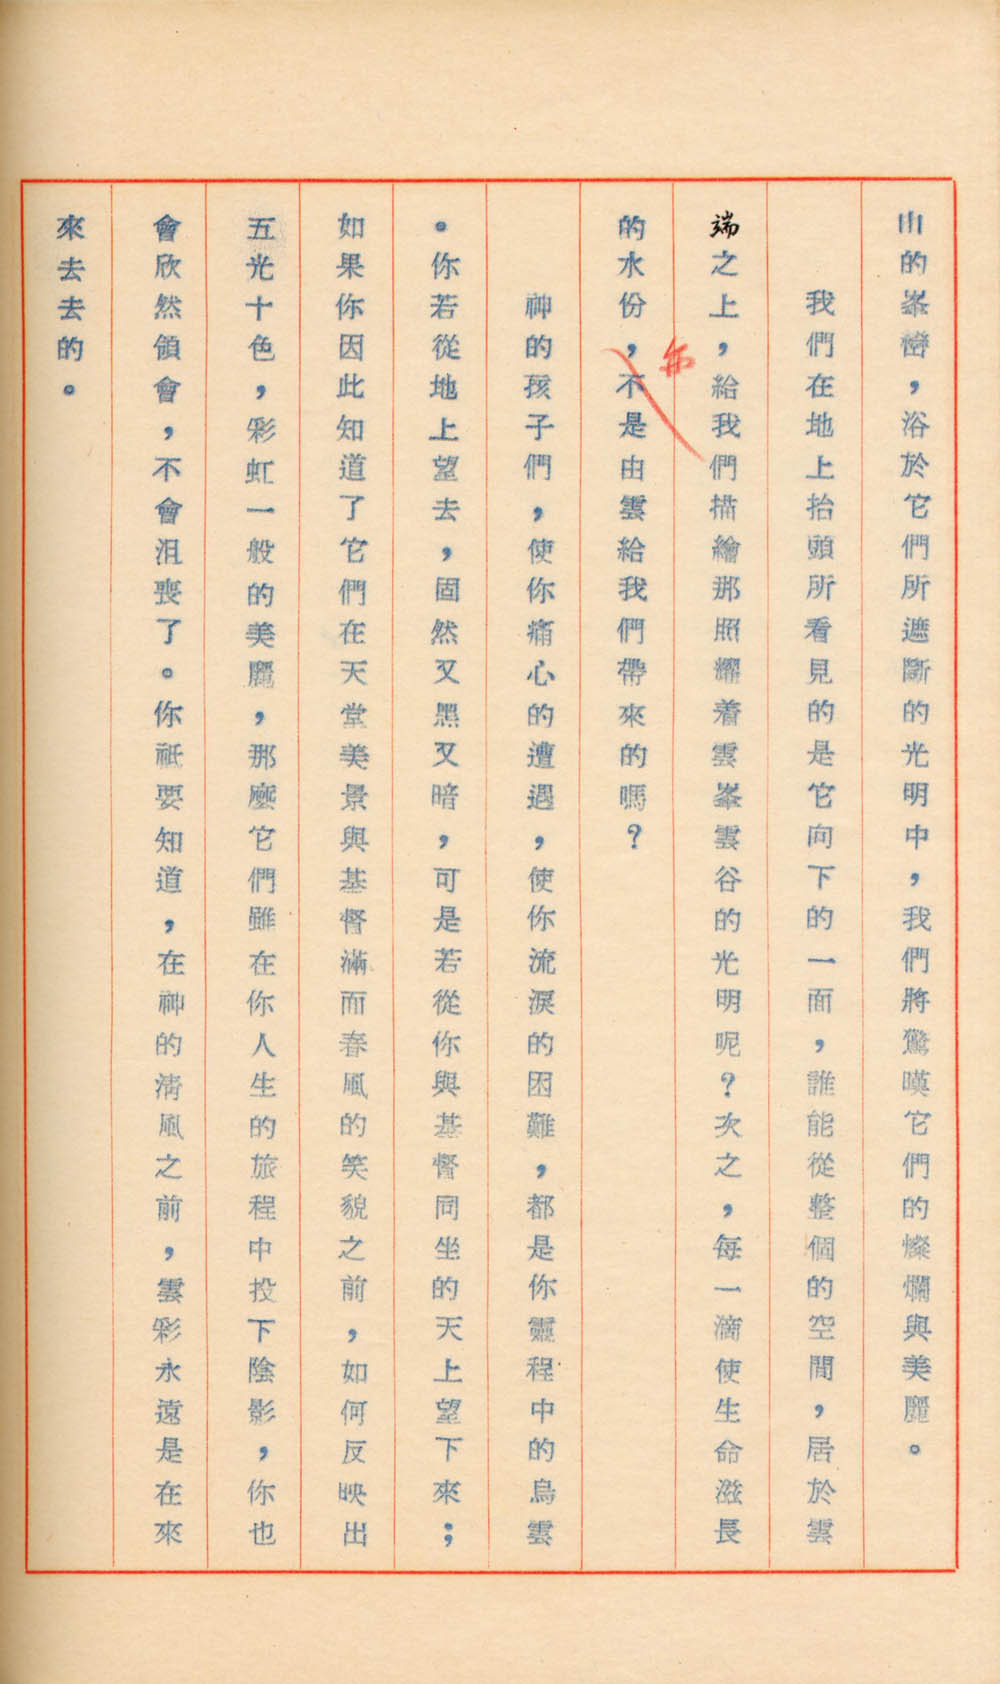 山的峯巒，浴於它們所遮斷的光明中，我們將驚嘆它們的燦爛與美麗。
我們在地上抬頭所看見的是它向下的一面，誰能從整個的空間，居於雲
端之上，給我們描繪那照耀着雲峯雲谷的光明呢？次之，每一滴使生命滋長
的水份，不是由雲給我們帶來的嗎？
神的孩子們，使你痛心的遭遇，使你流淚的困難，都是你靈程中的烏雲
。你若從地上望去，固然又黑又暗，可是若從你與基督同坐的天上望下來；
如果你因此知道了它們在天堂美景與基督滿面春風的笑貌之前，如何反映出
五光十色，彩虹一般的美麗，那麼它們雖在你人生的旅程中投下陰影，你也
會欣然領會，不會沮喪了。你祇要知道，在神的清風之前，雲彩永遠是在來
來去去的。